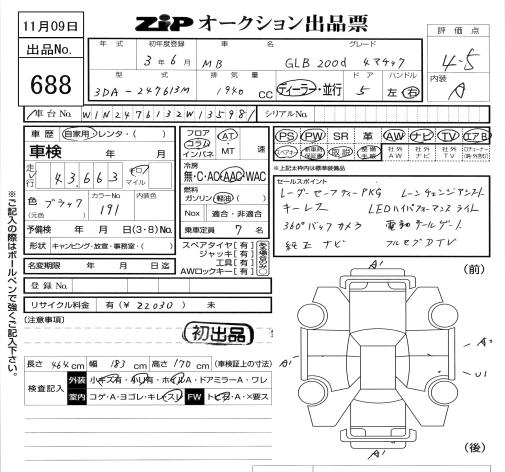 11月09日
出品No.
688
ZIP オークション出品票
評価点
4.5
内装
A
年式 初年度登録 車名 グレード
3年6月 MB GLB 200d 4マチック
型式 排気量 ドア ハンドル
3DA-247613M 1940 CC ディーラー・並行 5 左 右
車台No. W1N2476132W135981 シリアルNo.
車歴 自家用・レンタ・( )
車検 年 月
走行 43,663 キロ マイル
色 ブラック カラーNo. 191 内装色
(元色)
予備検 年 月 日(3・8)No.
形状 キャンピング・放宣・事務室・( )
名変期限 年 月 日迄
登録No.
リサイクル料金 有(¥22030) 未
フロア コラム インパネ AT MT 速
冷房
無・C・AC・AAC・WAC
燃料
ガソリン 軽油( )
Nox 適合・非適合
乗車定員 7 名
スペアタイヤ[有]
ジャッキ[有]
工具[有]
AWロックキー[有]
PS PW SR 革 AW ナビ TV エアB
スペアキー 新車時保証書 取説 整備手帳 社外AW 社外ナビ 社外TV
※上記太枠内は標準装備品
セールスポイント
レーダーセーフティーPKG レーンチェンジアシスト
キーレス LEDハイパフォーマンスライト
360°バックカメラ 電動テールゲート
純正ナビ フルセグDTV
(前)
【注意事項】
初出品
長さ 464 cm 幅 183 cm 高さ 170 cm (車検証上の寸法)
検査記入 外装 小キズ有・小凹有・ホイルA・ドアミラーA・ワレ
室内 コゲA・ヨゴレ・キレ・スレ FW トビ石・A・×要ス
A'
A'
A²
U1
A'
(後)
※ご記入の際はボールペンで強くご記入下さい。